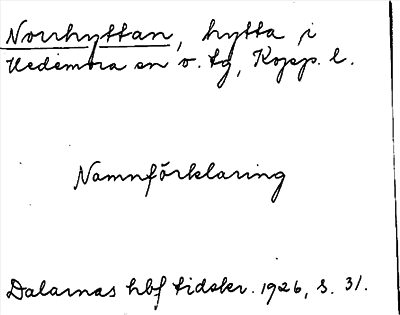 Norrhyttan, hytta i
Hedemora sn o. tg, Kopp. l.
Namnförklaring
Dalarnas hbf tidskr. 1926, s. 31.